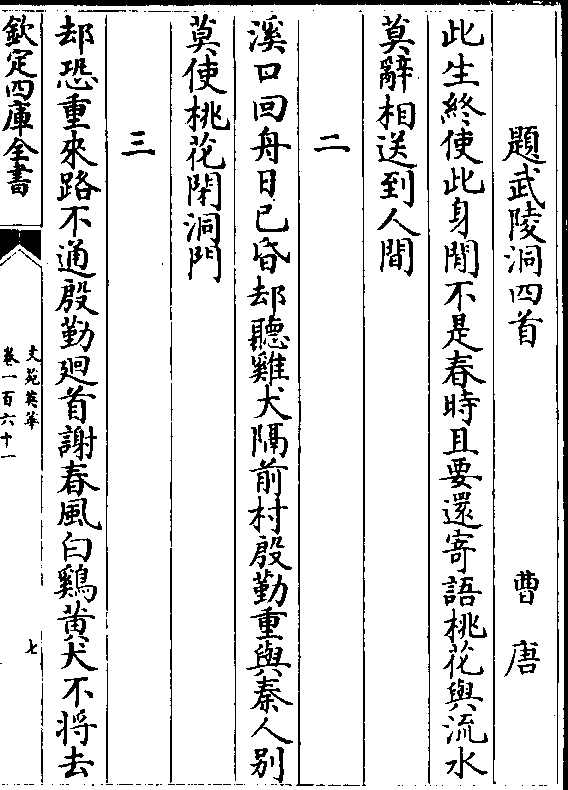 題武陵洞四首 曹唐
此生終使此身閒不是春時且要還寄語桃花與流水
莫辭相送到人間
二
溪口回舟日已昏却聽雞犬隔前村殷勤重與秦人別
莫使桃花閉洞門
三
却恐重來路不通殷勤廻首謝春風白鷄黄犬不將去
欽定四庫全書
文苑英華
卷一百六十一
七